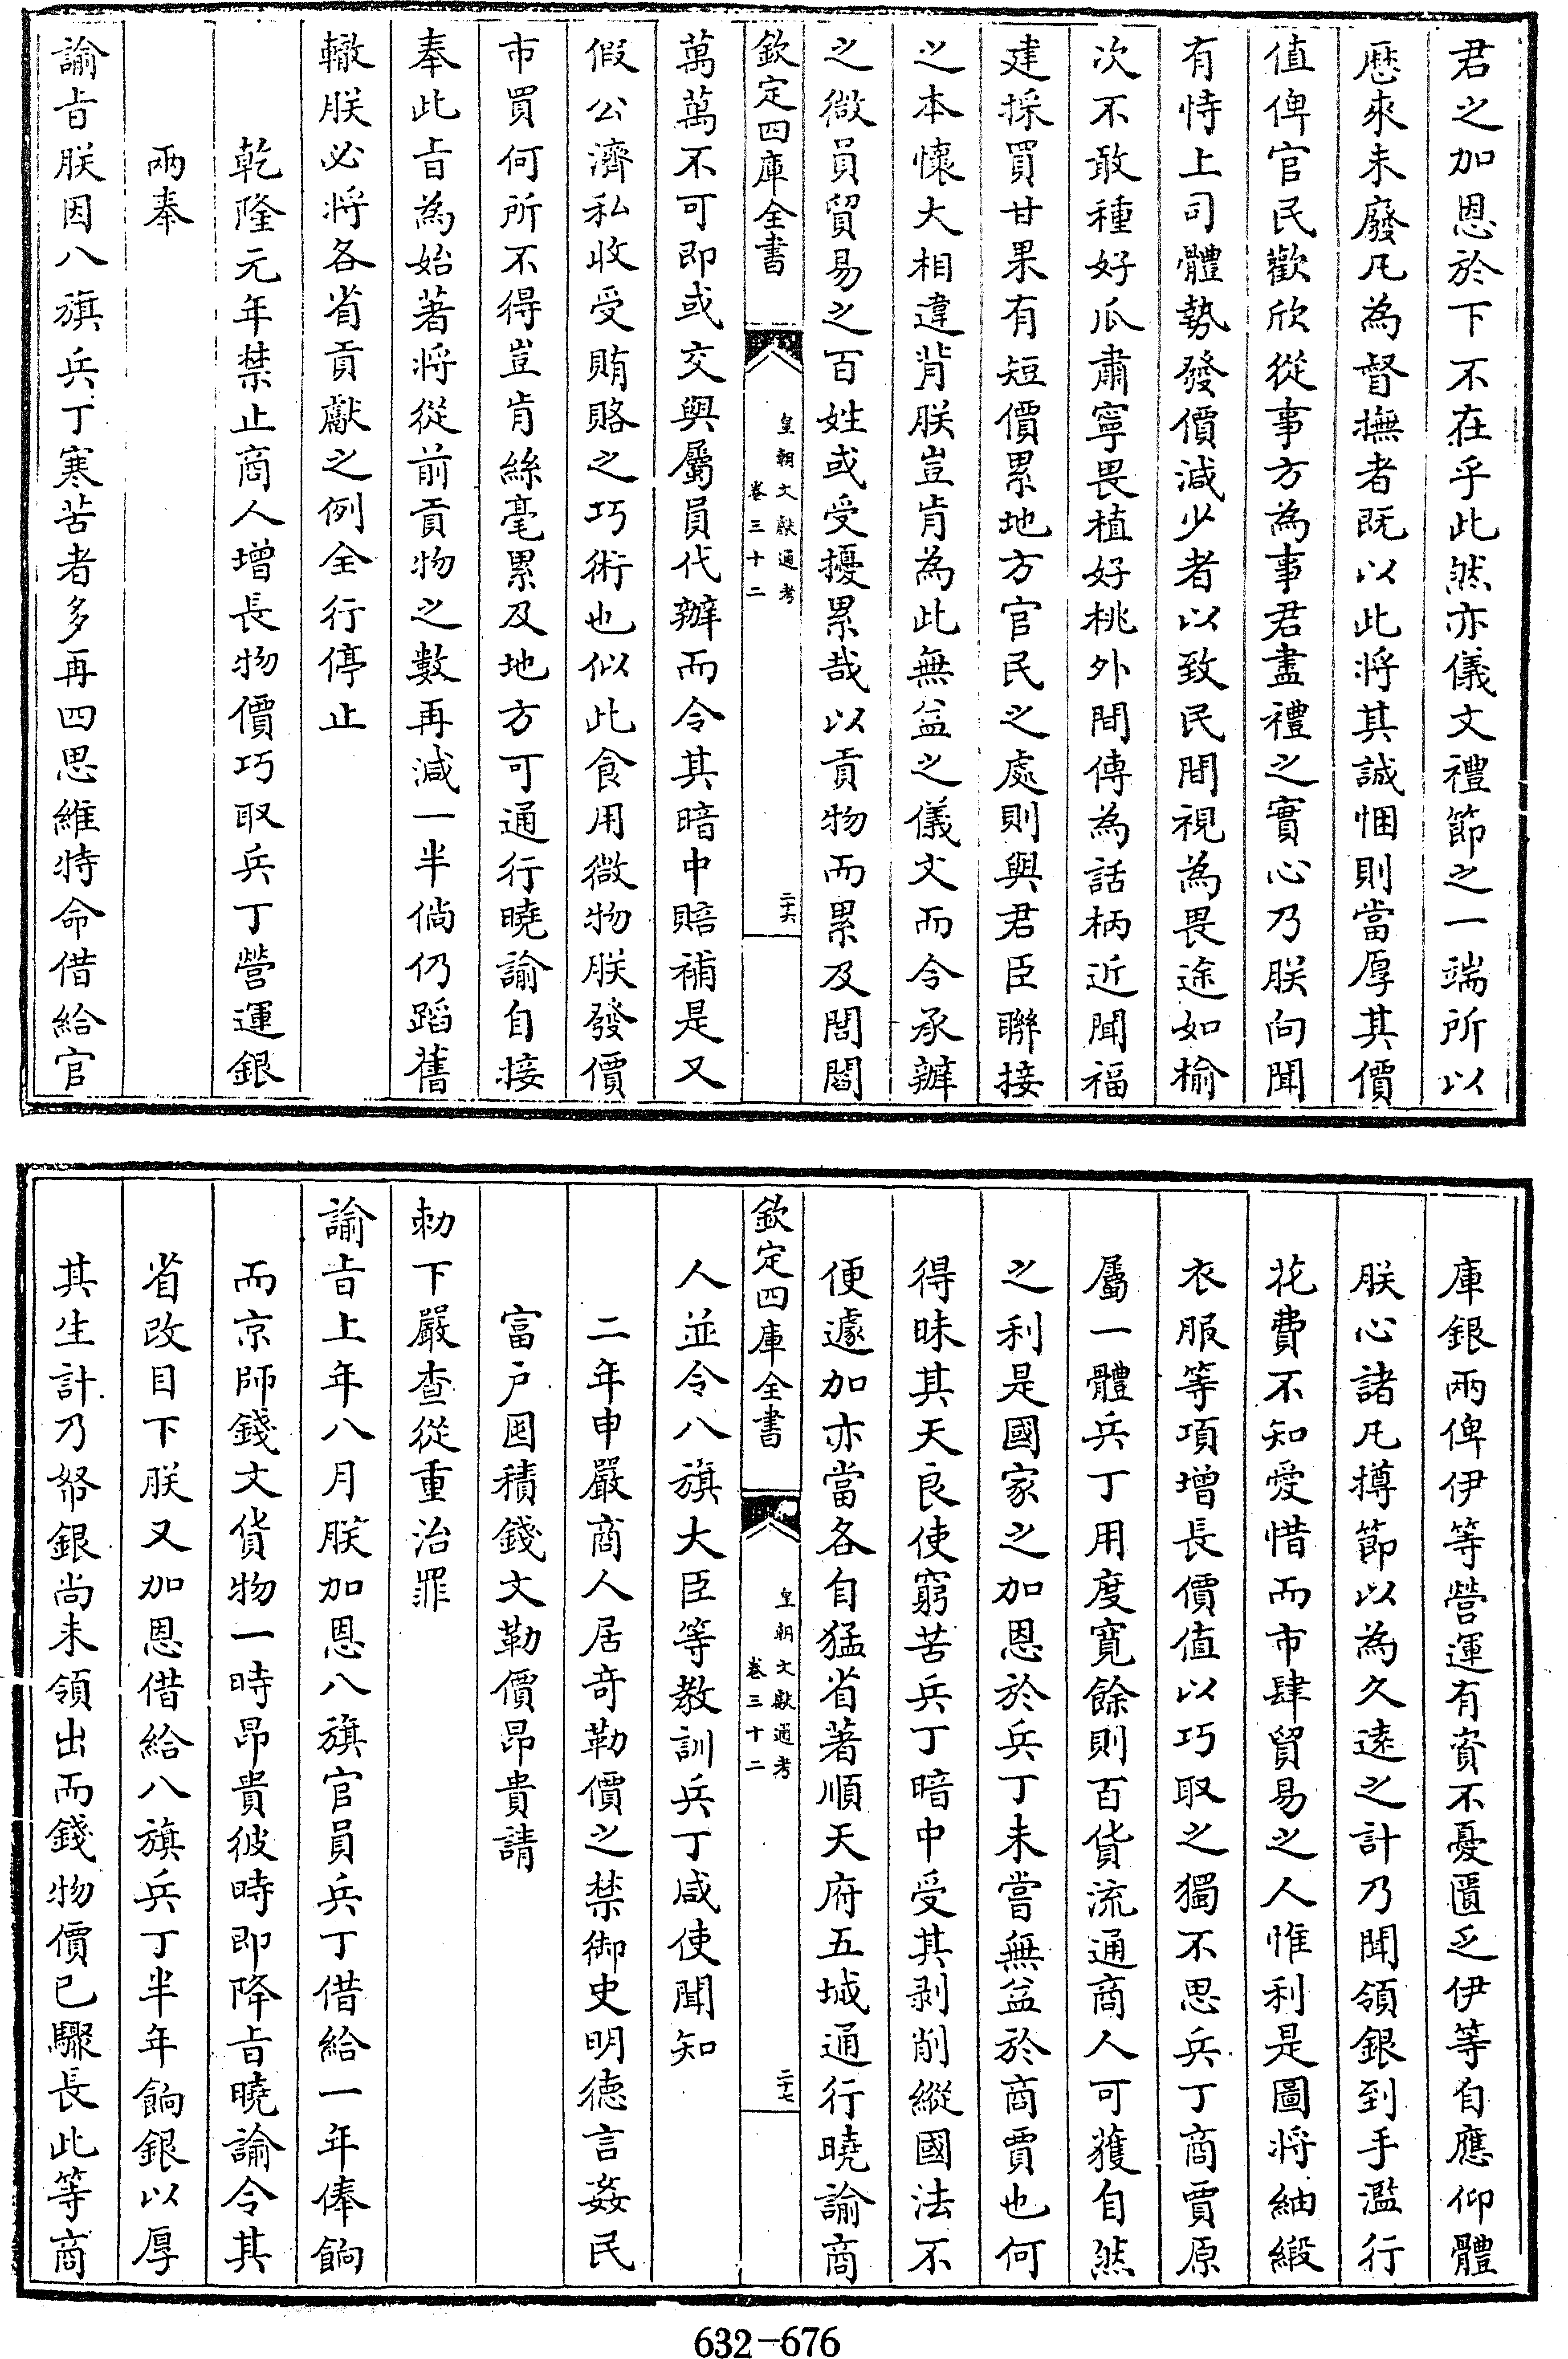 君之加恩於下不在乎此然亦儀文禮節之一端所以
歴來未廢凡為督撫者既以此將其誠悃則當厚其價
值俾官民歡欣從事方為事君盡禮之實心乃朕向聞
有恃上司體勢發價減少者以致民間視為畏途如榆
次不敢種好瓜肅寧畏植好桃外間傳為話柄近聞福
建採買甘果有短價累地方官民之處則與君臣聯接
之本懷大相違背朕豈肯為此無益之儀文而令承辦
之微員貿易之百姓或受擾累哉以貢物而累及閭閻
欽定四庫全書
皇朝文獻通考
卷三十二
二十六
萬萬不可即或交與屬員代辦而令其暗中賠補是又
假公濟私收受賄賂之巧術也似此食用微物朕發價
市買何所不得豈肯絲毫累及地方可通行曉諭自接
奉此㫖為始著將從前貢物之數再減一半倘仍蹈舊
轍朕必將各省貢獻之例全行停止
乾隆元年禁止商人增長物價巧取兵丁營運銀
兩奉
諭㫖朕因八旗兵丁寒苦者多再四思維特命借給官
庫銀兩俾伊等營運有資不憂匱乏伊等自應仰體
朕心諸凡撙節以為久逺之計乃聞領銀到手濫行
花費不知愛惜而市肆貿易之人惟利是圖將紬緞
衣服等項增長價值以巧取之獨不思兵丁商賈原
屬一體兵丁用度寛餘則百貨流通商人可獲自然
之利是國家之加恩於兵丁未嘗無益於商賈也何
得昧其天良使窮苦兵丁暗中受其剥削縱國法不
便遽加亦當各自猛省著順天府五城通行曉諭商
欽定四庫全書
皇朝文獻通考
卷三十二
二十七
人並令八旗大臣等教訓兵丁咸使聞知
二年申嚴商人居竒勒價之禁御史明德言姦民
富户囤積錢文勒價昂貴請
勅下嚴查從重治罪
諭㫖上年八月朕加恩八旗官員兵丁借給一年俸餉
而京師錢文貨物一時昂貴彼時即降㫖曉諭令其
省改目下朕又加恩借給八旗兵丁半年餉銀以厚
其生計乃帑銀尚未領出而錢物價已驟長此等商
632-676